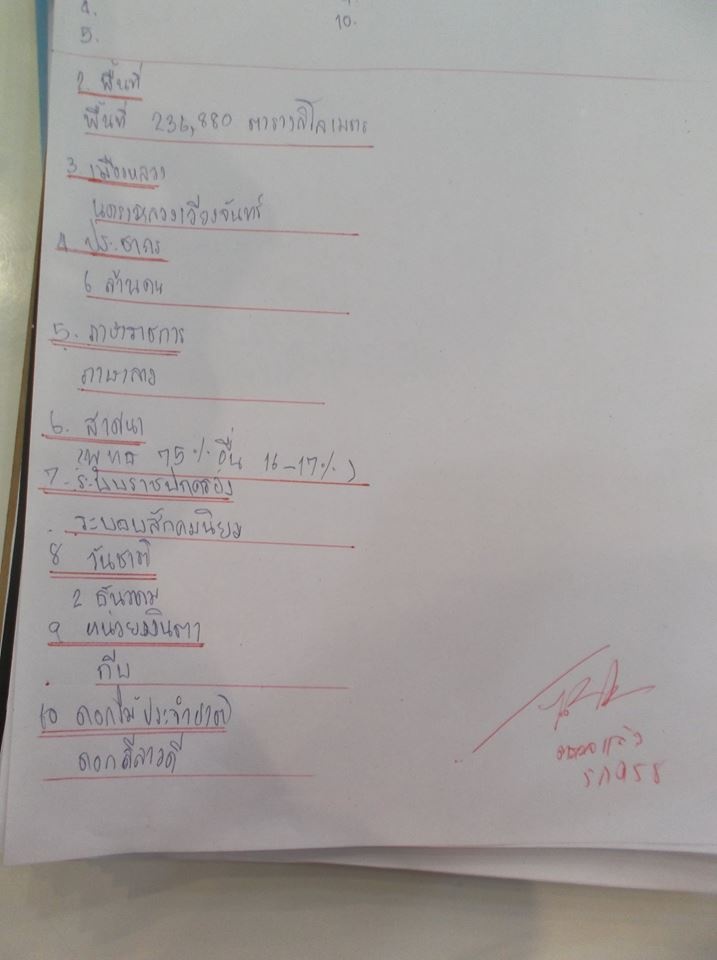 4.
5.
10.
2. พื้นที่
พื้นที่ 236,880 ตารางกิโลเมตร
3. เมืองหลวง
นครหลวงเวียงจันทร์
4 ประชากร
6 ล้านคน
5. ภาษาราชการ
ภาษาลาว
6. ศาสนา
(พุทธ 75% อื่น 16-17%)
7. ระบบราชปกครอง
ระบอบสังคมนิยม
8 วันชาติ
2 ธันวาคม
9 หน่วยเงินตรา
กีบ
10 ดอกไม้ประจำชาติ
ดอกลีลาวดี
ตรวจแล้ว